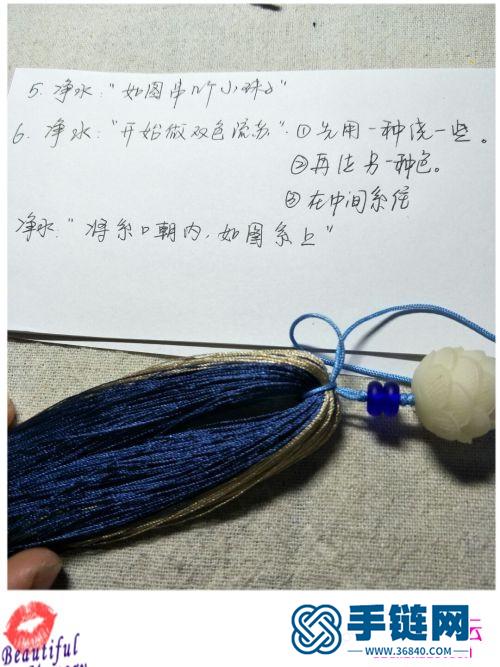 5. 净水："如图串几个小珠子"
6. 净水："开始做双色流苏". ①先用一种绕一些。
②再绕另一种色。
③在中间系住
净水："将系口朝内，如图系上"
Beautiful
手链网
WWW.36840.COM